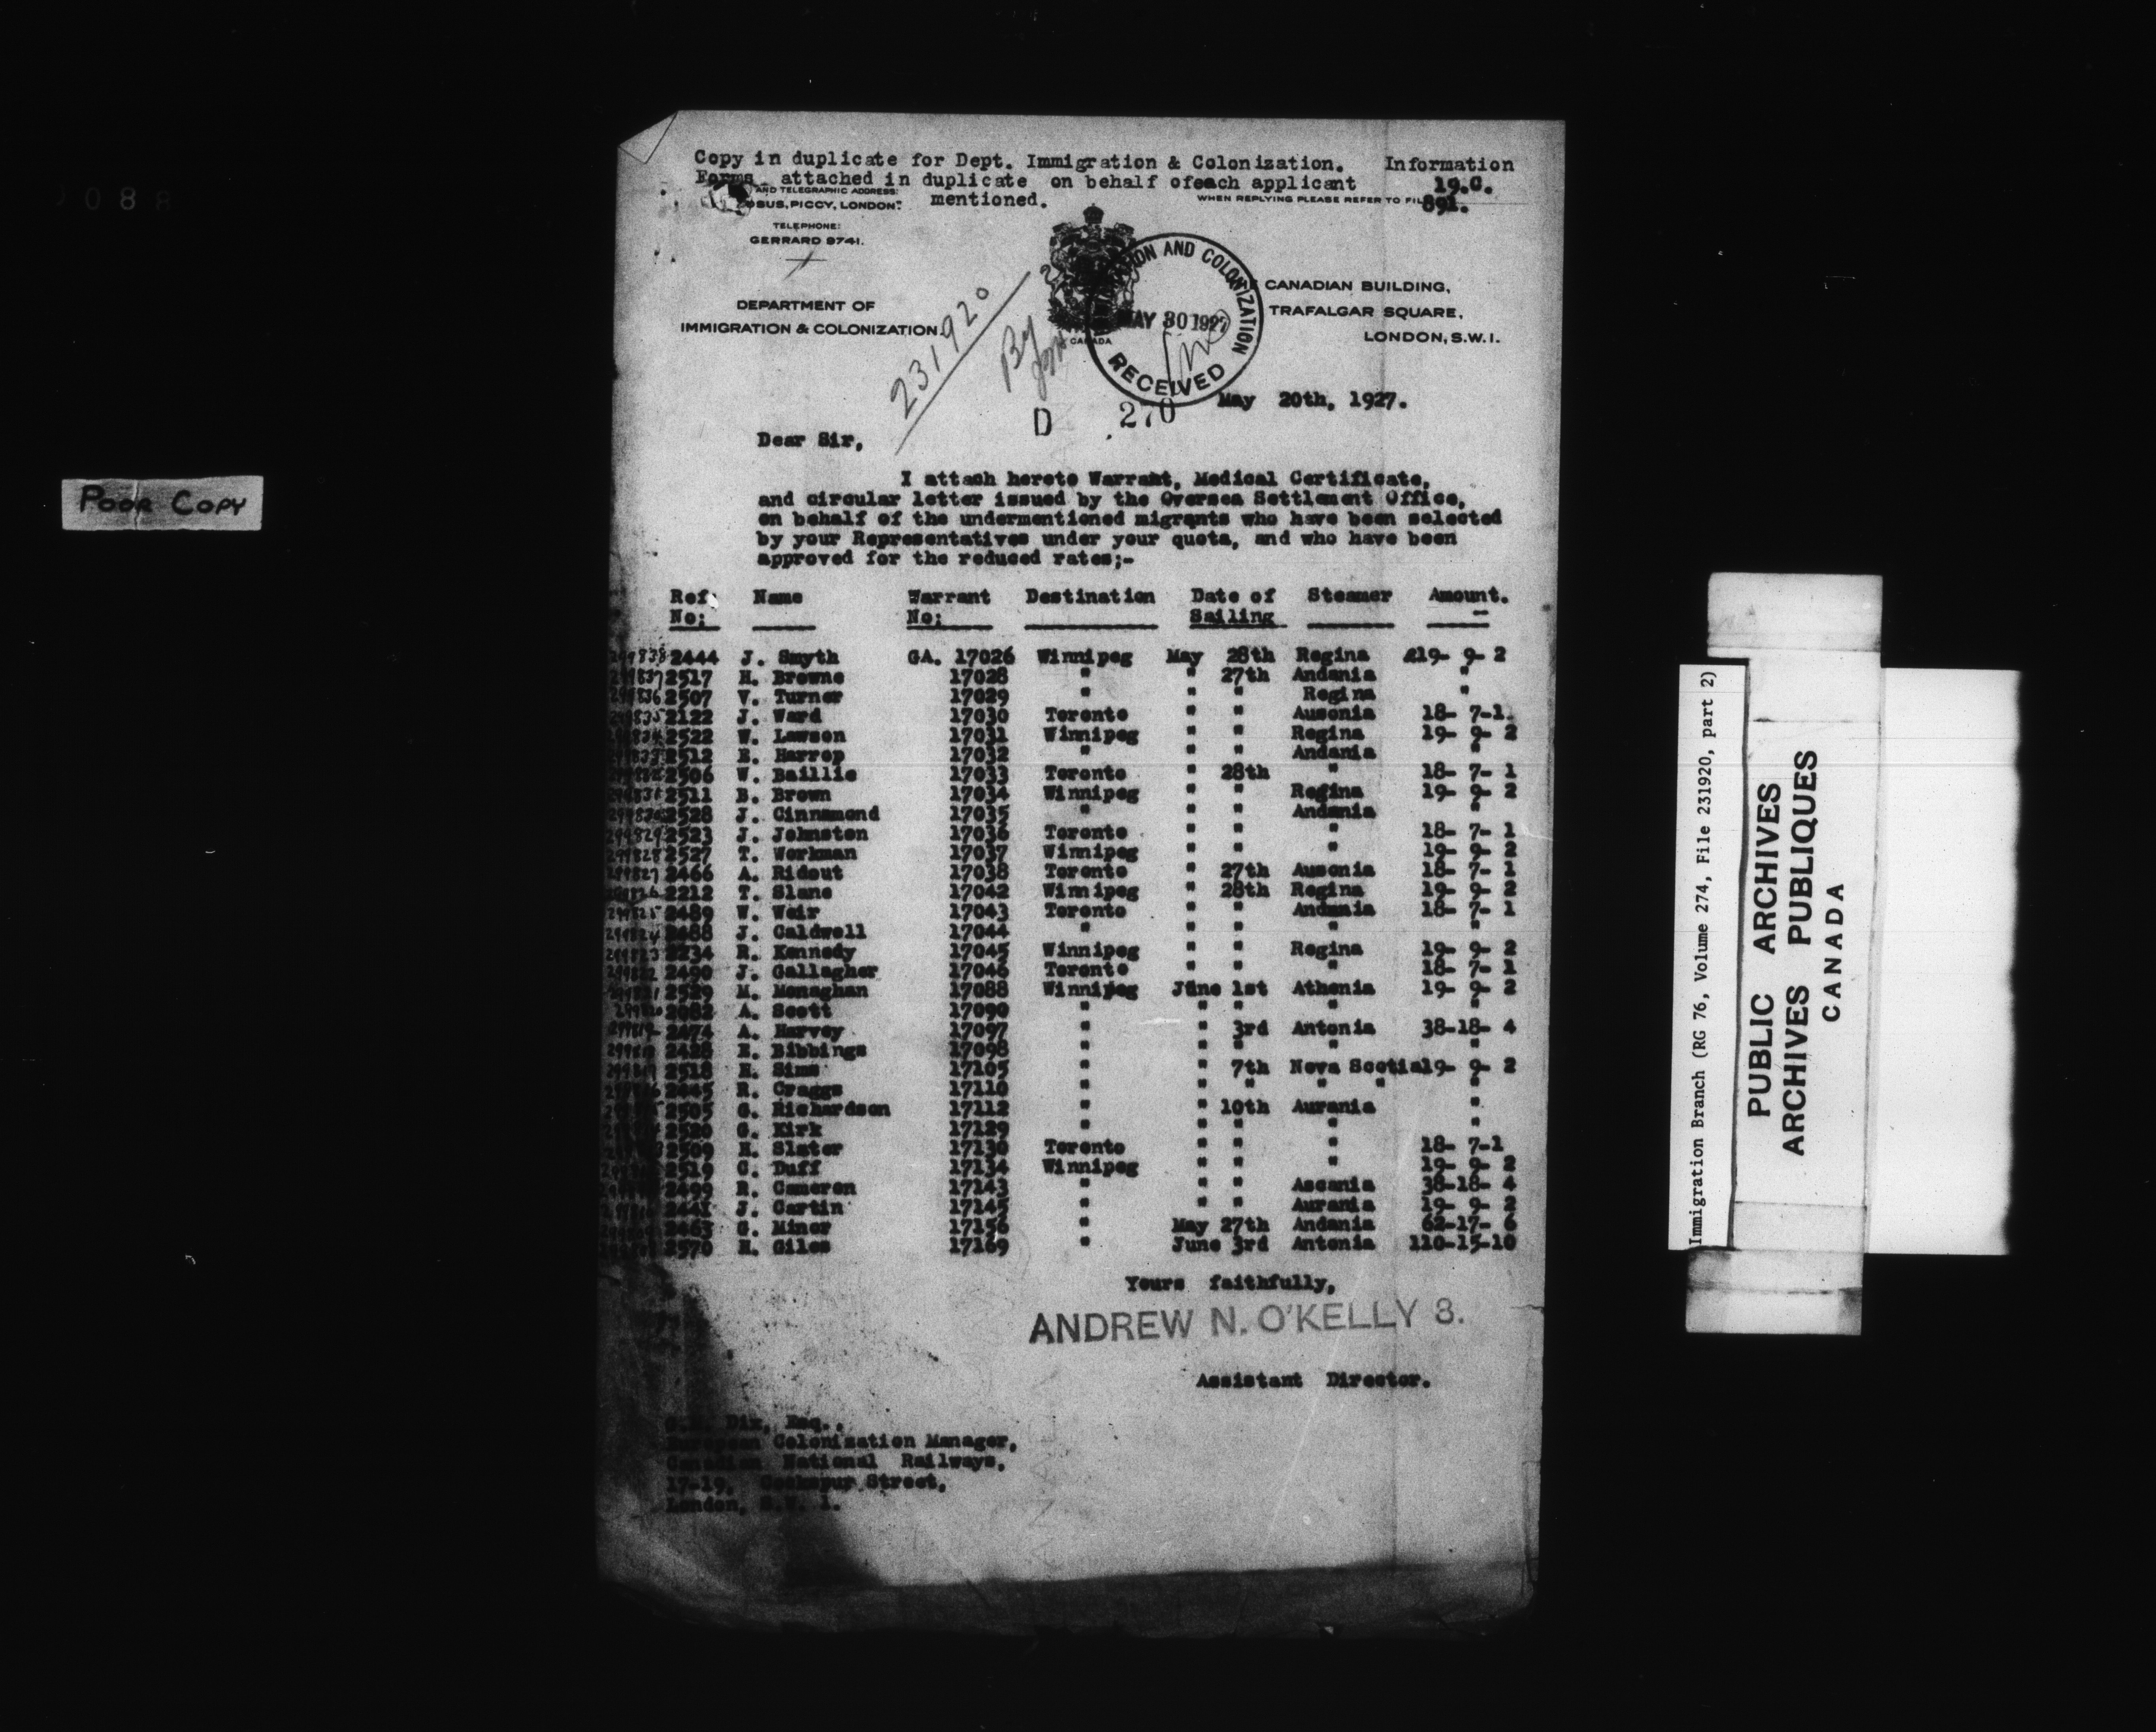 Copy in duplicate for Dept. Immigration & Colonization. Information
Forms attached in duplicate on behalf ofeach applicant 19.C.
mentioned. 891.
AND TELEGRAPHIC ADDRESS:
OBUS, PICCY, LONDON."
WHEN REPLYING PLEASE REFER TO FIL
TELEPHONE:
GERRARD 9741.
DEPARTMENT OF
IMMIGRATION & COLONIZATION.
231920
By
CANADA
ION AND COLONIZATION
MAY 30 1927
RECEIVED
CANADIAN BUILDING,
TRAFALGAR SQUARE,
LONDON, S.W.1.
D 270
May 20th, 1927.
Dear Sir,
I attach hereto Warrant, Medical Certificate,
and circular letter issued by the Oversea Settlement Office,
on behalf of the undermentioned migrants who have been selected
by your Representatives under your quota, and who have been
approved for the reduced rates;-
Ref: Name Warrant Destination Date of Steamer Amount.
No: No: Sailing
299838 2444 J. Smyth GA. 17026 Winnipeg May 28th Regina £19- 9- 2
299837 2517 H. Browne 17028 " " 27th Andania "
299836 2507 V. Turner 17029 " " " Regina "
299835 2122 J. Ward 17030 Toronto " " Ausonia 18- 7-1.
299834 2522 W. Lawson 17031 Winnipeg " " Regina 19- 9- 2
299833 2512 E. Harrop 17032 " " " Andania "
2506 W. Baillie 17033 Toronto " 28th " 18- 7- 1
299831 2511 B. Brown 17034 Winnipeg " " Regina 19- 9- 2
299830 2528 J. Cinnamond 17035 " " " Andania "
299829 2523 J. Johnston 17036 Toronto " " " 18- 7- 1
299828 2527 T. Workman 17037 Winnipeg " " " 19- 9- 2
299827 2466 A. Ridout 17038 Toronto " 27th Ausonia 18- 7- 1
299826 2212 T. Slane 17042 Winnipeg " 28th Regina 19- 9- 2
299825 2489 W. Weir 17043 Toronto " " Andania 18- 7- 1
299824 2488 J. Caldwell 17044 " " " " "
299823 2234 R. Kennedy 17045 Winnipeg " " Regina 19- 9- 2
299822 2490 J. Gallagher 17046 Toronto " " " 18- 7- 1
2529 M. Monaghan 17088 Winnipeg June 1st Athenia 19- 9- 2
2082 A. Scott 17090 " " " " "
2474 A. Harvey 17097 " " 3rd Antonia 38-18- 4
2428 E. Bibbings 17098 " " " " "
2518 H. Sims 17105 " " 7th Nova Scotia19- 9- 2
2445 R. Craggs 17110 " " " " " "
2505 G. Richardson 17112 " " 10th Aurania "
2520 G. Kirk 17129 " " " " "
2509 H. Slater 17130 Toronto " " " 18- 7-1
2519 C. Duff 17134 Winnipeg " " " 19- 9- 2
2499 R. Cameron 17143 " " " Ascania 38-18- 4
2441 J. Cartin 17145 " " " Aurania 19- 9- 2
2463 G. Minor 17156 " May 27th Andania 62-17- 6
2570 H. Giles 17169 " June 3rd Antonia 110-15-10
Yours faithfully,
ANDREW N. O'KELLY 8.
Assistant Director.
Dix, Esq.,
European Colonization Manager,
Canadian National Railways,
17-19, Cockspur Street,
London, S.W. 1.
POOR COPY
Immigration Branch (RG 76, Volume 274, File 231920, part 2)
PUBLIC ARCHIVES
ARCHIVES PUBLIQUES
CANADA